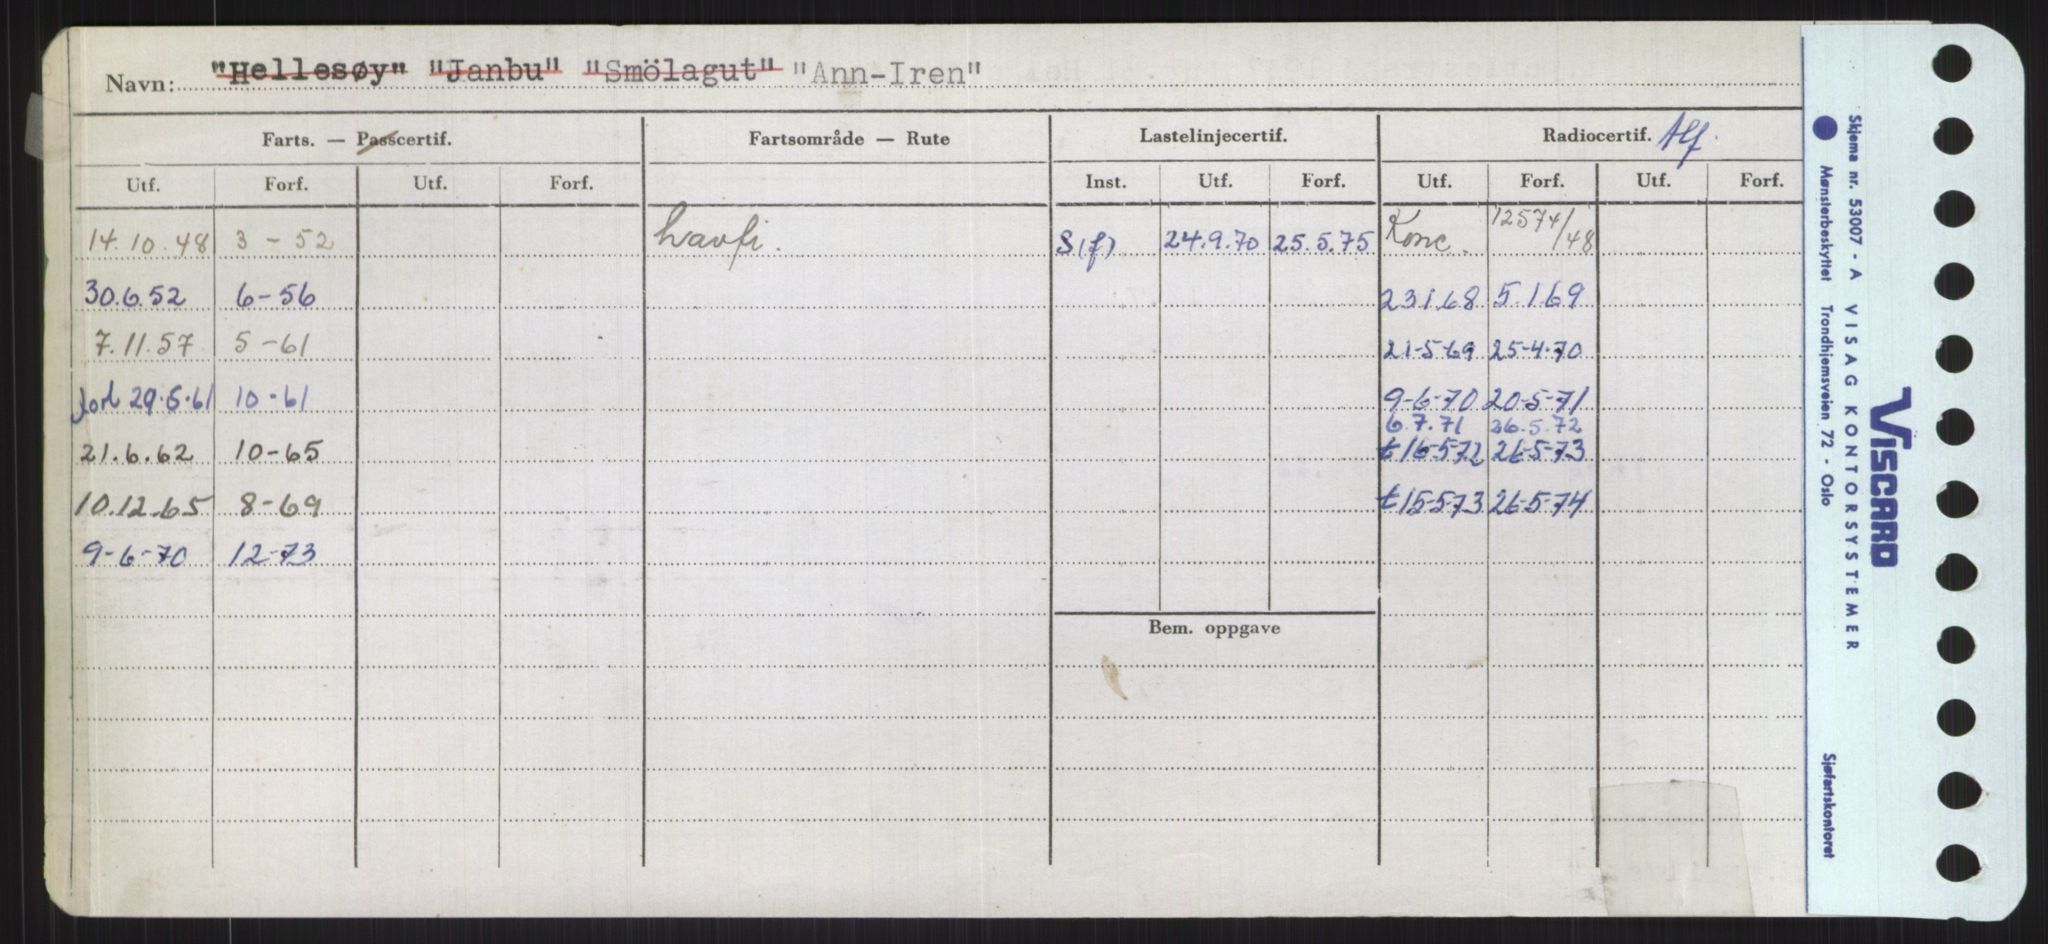 Navn: "Hellesøy" "Janbu" "Smölagut" "Ann-Iren"
Farts. — Passcertif. Fartsområde — Rute Lastelinjecertif. Radiocertif. Alf.
Utf. Forf. Utf. Forf. Inst. Utf. Forf. Utf. Forf. Utf. Forf.
14.10.48 3-52 havfi. S(f) 24.9.70 25.5.75 Konc. 12574/48
30.6.52 6-56 23.1.68 5.1.69
7.11.57 5-61 21-5-69 25-4-70
29.5.61 10-61 9-6-70 20-5-71
6.7.71 26.5.72
21.6.62 10-65 t 16-5-72 26-5-73
10.12.65 8-69 t 15-5-73 26-5-74
9-6-70 12-73
Bem. oppgave
Skjema nr. 53007 - A VISAG KONTORSYSTEMER
Mønsterbeskyttet Trondhjemsveien 72 - Oslo
VISCARD
Sjøfartskontoret